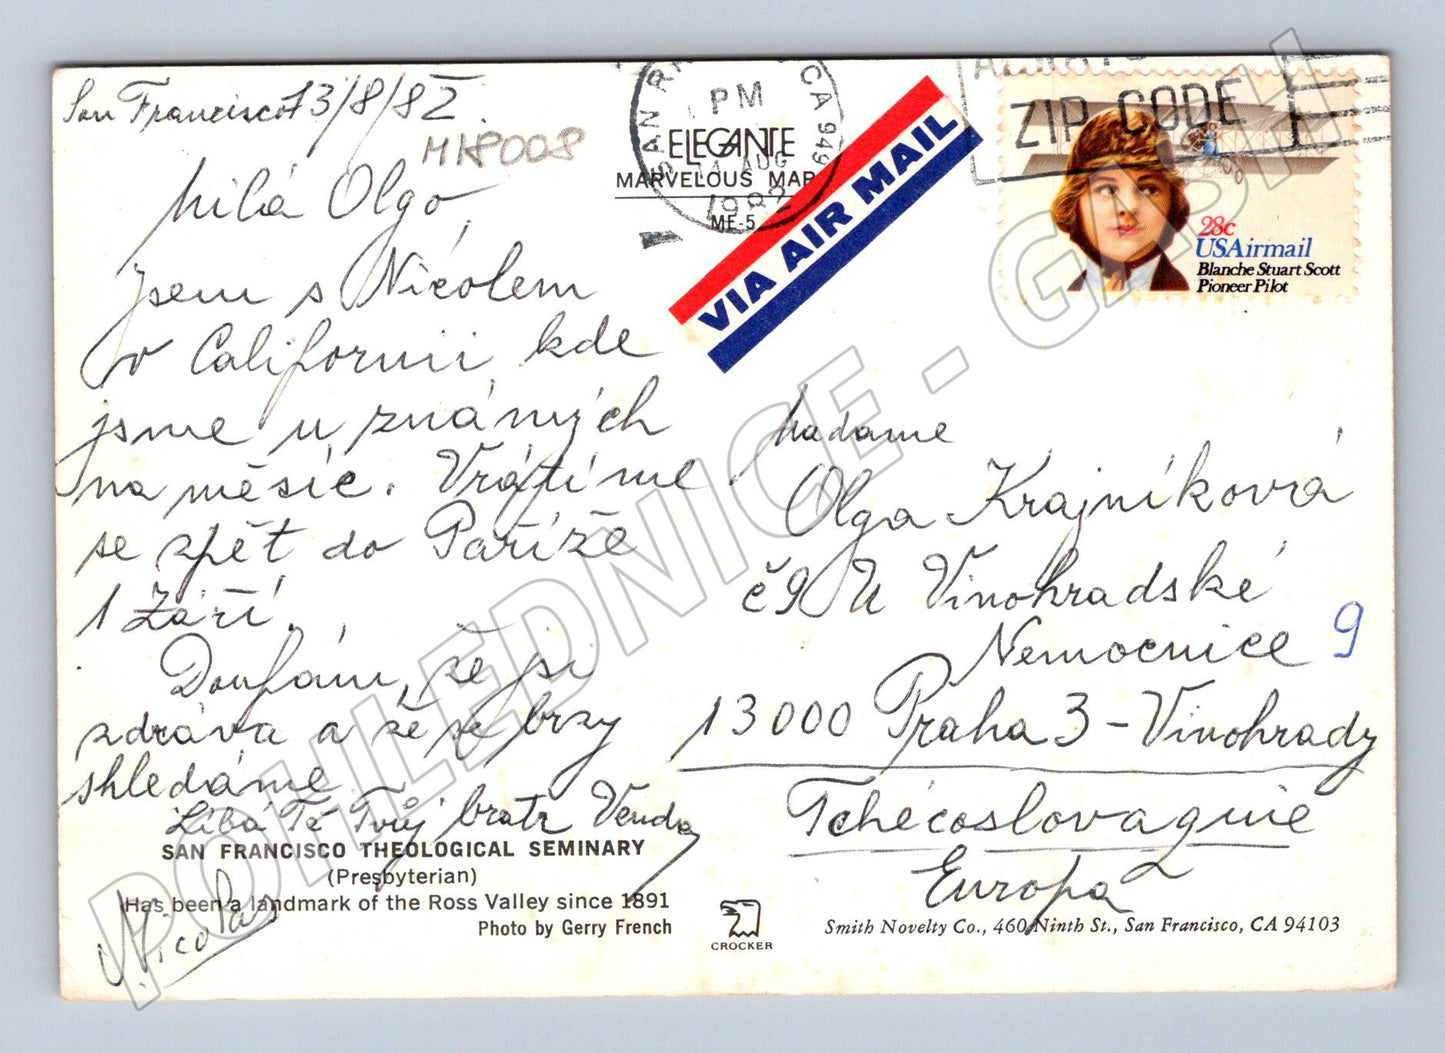 San Francisco 13/8/82
M18008
Milá Olgo,
jsem s Nicolem
v Californii kde
jsme u známých
na měsíc. Vrátíme
se zpět do Paříže
1 Září.
Doufám, že jsi
zdráva a že se brzy
shledáme
Líbá Tě Tvůj bratr Venda
Nicolas
SAN FRANCISCO THEOLOGICAL SEMINARY
(Presbyterian)
Has been a landmark of the Ross Valley since 1891
Photo by Gerry French
ELEGANTE
MARVELOUS MAR
ME-5
SAN RA CA 949
PM
14 AUG
1982
VIA AIR MAIL
ZIP CODE
28c
USAirmail
Blanche Stuart Scott
Pioneer Pilot
Madame
Olga Krajníková
č9 U Vinohradské
Nemocnice 9
13000 Praha 3 - Vinohrady
Tchécoslovaquie
Europa
CROCKER
Smith Novelty Co., 460 Ninth St., San Francisco, CA 94103
POHLEDNICE - GASH